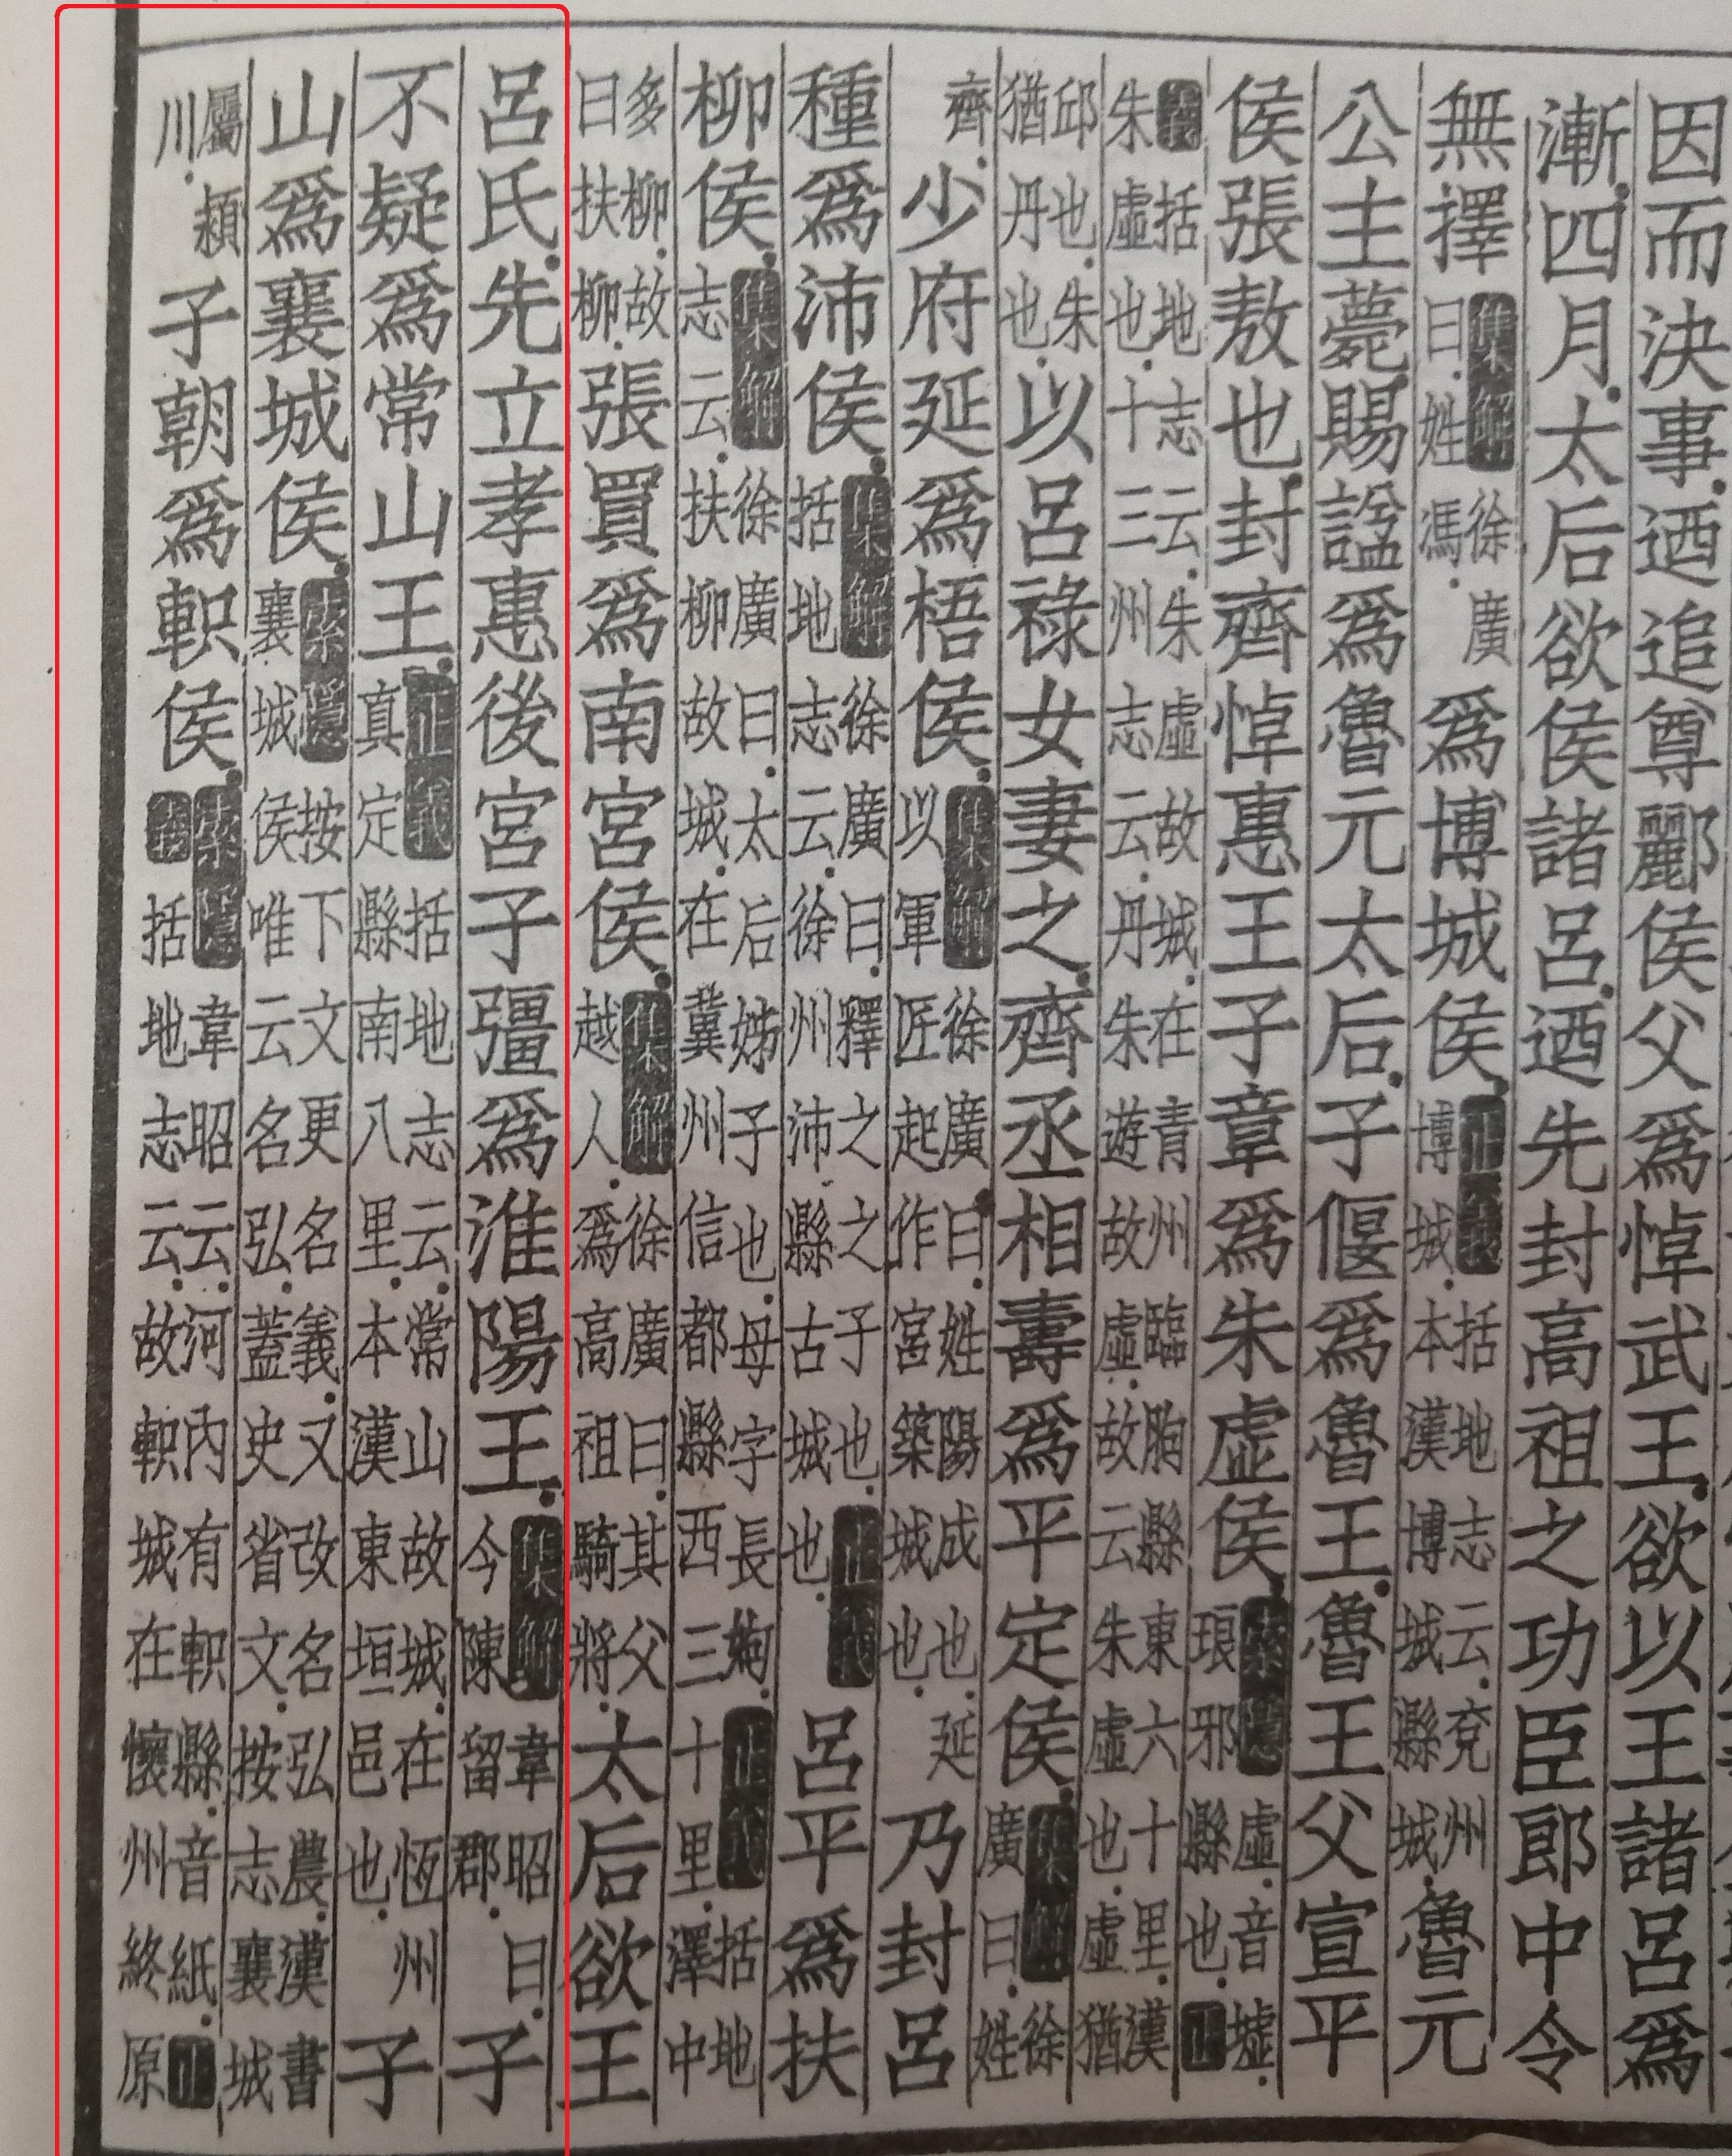 因而決事迺追尊酈侯父爲悼武王欲以王諸呂爲
漸四月太后欲侯諸呂迺先封高祖之功臣郎中令
無擇集解徐廣曰姓馮爲博城侯正義括地志云兗州博城本漢博城縣城魯元
公主薨賜諡爲魯元太后子偃爲魯王魯王父宣平
侯張敖也封齊悼惠王子章爲朱虛侯索隱虛音墟琅邪縣也正
義括地志云朱虛故城在青州臨朐縣東六十里漢朱虛也十三州志云丹朱遊故虛故云朱虛也虛猶
邱也朱猶丹也以呂祿女妻之齊丞相壽爲平定侯集解徐廣曰姓
齊少府延爲梧侯集解徐廣曰姓陽成也延以軍匠起作宮築城也乃封呂
種爲沛侯集解徐廣曰釋之之子也正義括地志云徐州沛縣古城也呂平爲扶
柳侯集解徐廣曰太后姊子也母字長姁正義括地志云扶柳故城在冀州信都縣西三十里澤中
多柳故曰扶柳張買爲南宮侯集解徐廣曰其父越人爲高祖騎將太后欲王
呂氏先立孝惠後宮子彊爲淮陽王集解韋昭曰今陳留郡子
不疑爲常山王正義括地志云常山故城在恆州真定縣南八里本漢東垣邑也子
山爲襄城侯索隱按下文更名義又改名弘農漢書襄城侯唯云名弘蓋史省文按志襄城
屬潁川子朝爲軹侯索隱韋昭云河內有軹縣音紙正義括地志云故軹城在懷州終原